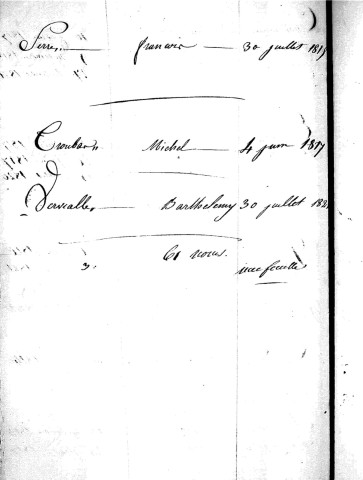 Serres francois 30 juillet 1819
Troubat Michel 4 juin 1817
D
Versailles Barthelemy 30 juillet
61 noms.
3. une feuille